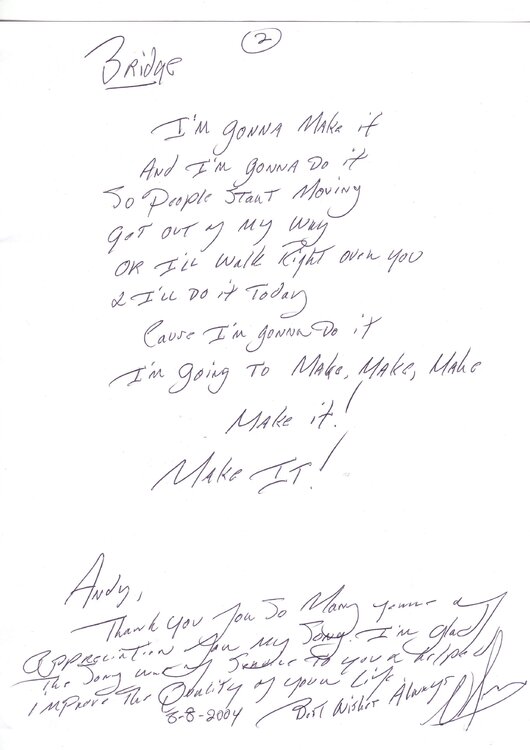 2
Bridge
I'm gonna Make it
And I'm gonna Do it
So People Start Moving
Get out of my way
OR I'll walk Right over you
& I'll Do it Today
Cause I'm gonna Do it
I'm going To Make, Make, Make
Make it!
Make IT!
Andy,
Thank you for So Many years of
Appreciation for my Song. I'm glad
the Song was of Service to you & helped
improve the Quality of your Life
Best Wishes Always
8-8-2004